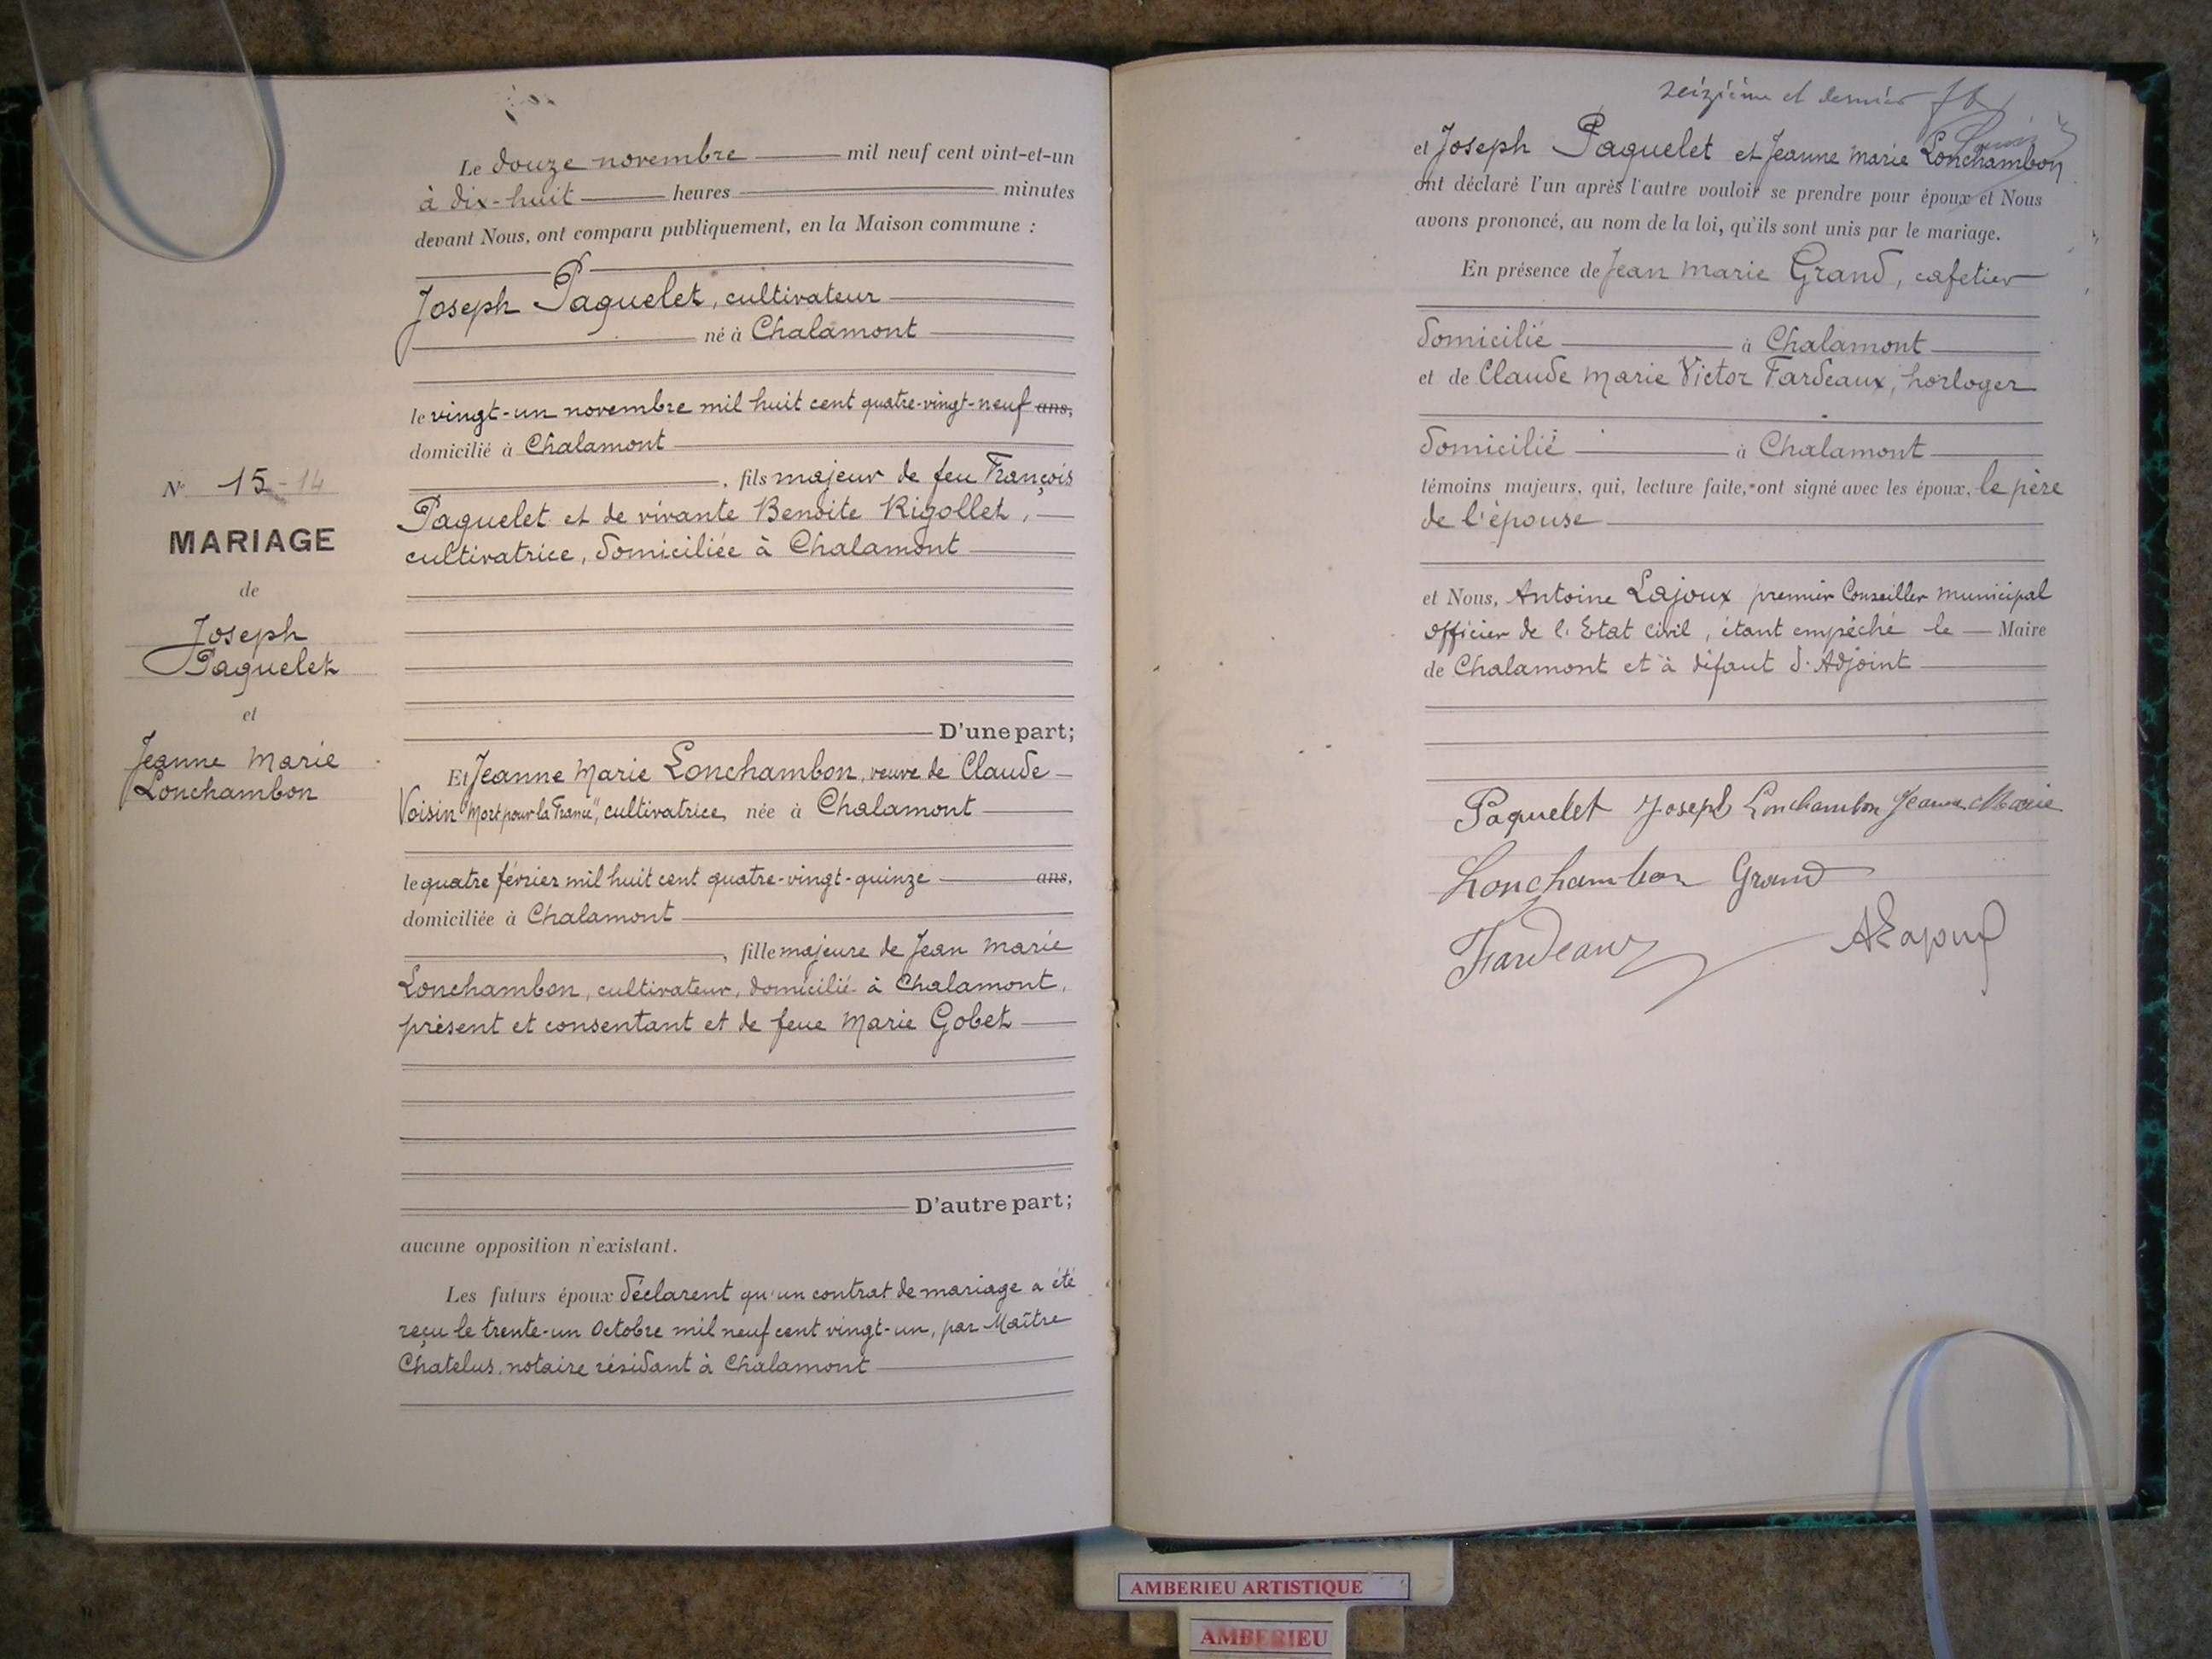 Le douze novembre mil neuf cent vint-et-un
à dix-huit heures minutes
devant Nous, ont comparu publiquement, en la Maison commune :
Joseph Paquelet, cultivateur
né à Chalamont
le vingt-un novembre mil huit cent quatre-vingt-neuf ans,
domicilié à Chalamont
, fils majeur de feu François
Paquelet et de vivante Benoite Rigollet,
cultivatrice, domiciliée à Chalamont
D'une part;
Et Jeanne Marie Lonchambon, veuve de Claude
Voisin "Mort pour la France", cultivatrice, née à Chalamont
le quatre février mil huit cent quatre-vingt-quinze ans,
domiciliée à Chalamont
, fille majeure de Jean Marie
Lonchambon, cultivateur, domicilié à Chalamont,
présent et consentant et de feue Marie Gobet
D'autre part;
aucune opposition n'existant.
Les futurs époux déclarent qu'un contrat de mariage a été
reçu le trente-un Octobre mil neuf cent vingt-un, par Maître
Chatelus, notaire résidant à Chalamont
N° 15 - 14
MARIAGE
de
Joseph
Paquelet
et
Jeanne Marie
Lonchambon
seizième et dernier
et Joseph Paquelet et Jeanne Marie Lonchambon
ont déclaré l'un après l'autre vouloir se prendre pour époux et Nous
avons prononcé, au nom de la loi, qu'ils sont unis par le mariage.
En présence de Jean Marie Grand, cafetier
domicilié à Chalamont
et de Claude Marie Victor Fardeaux, horloger
domicilié à Chalamont
témoins majeurs, qui, lecture faite, ont signé avec les époux, le père
de l'épouse
et Nous, Antoine Lajoux premier Conseiller Municipal
officier de l'Etat Civil, étant empêché le Maire
de Chalamont et à défaut d'Adjoint
Paquelet Joseph Lonchambon Jeanne Marie
Lonchambon Grand
Fardeaux A Lajoux
AMBERIEU ARTISTIQUE
AMBERIEU